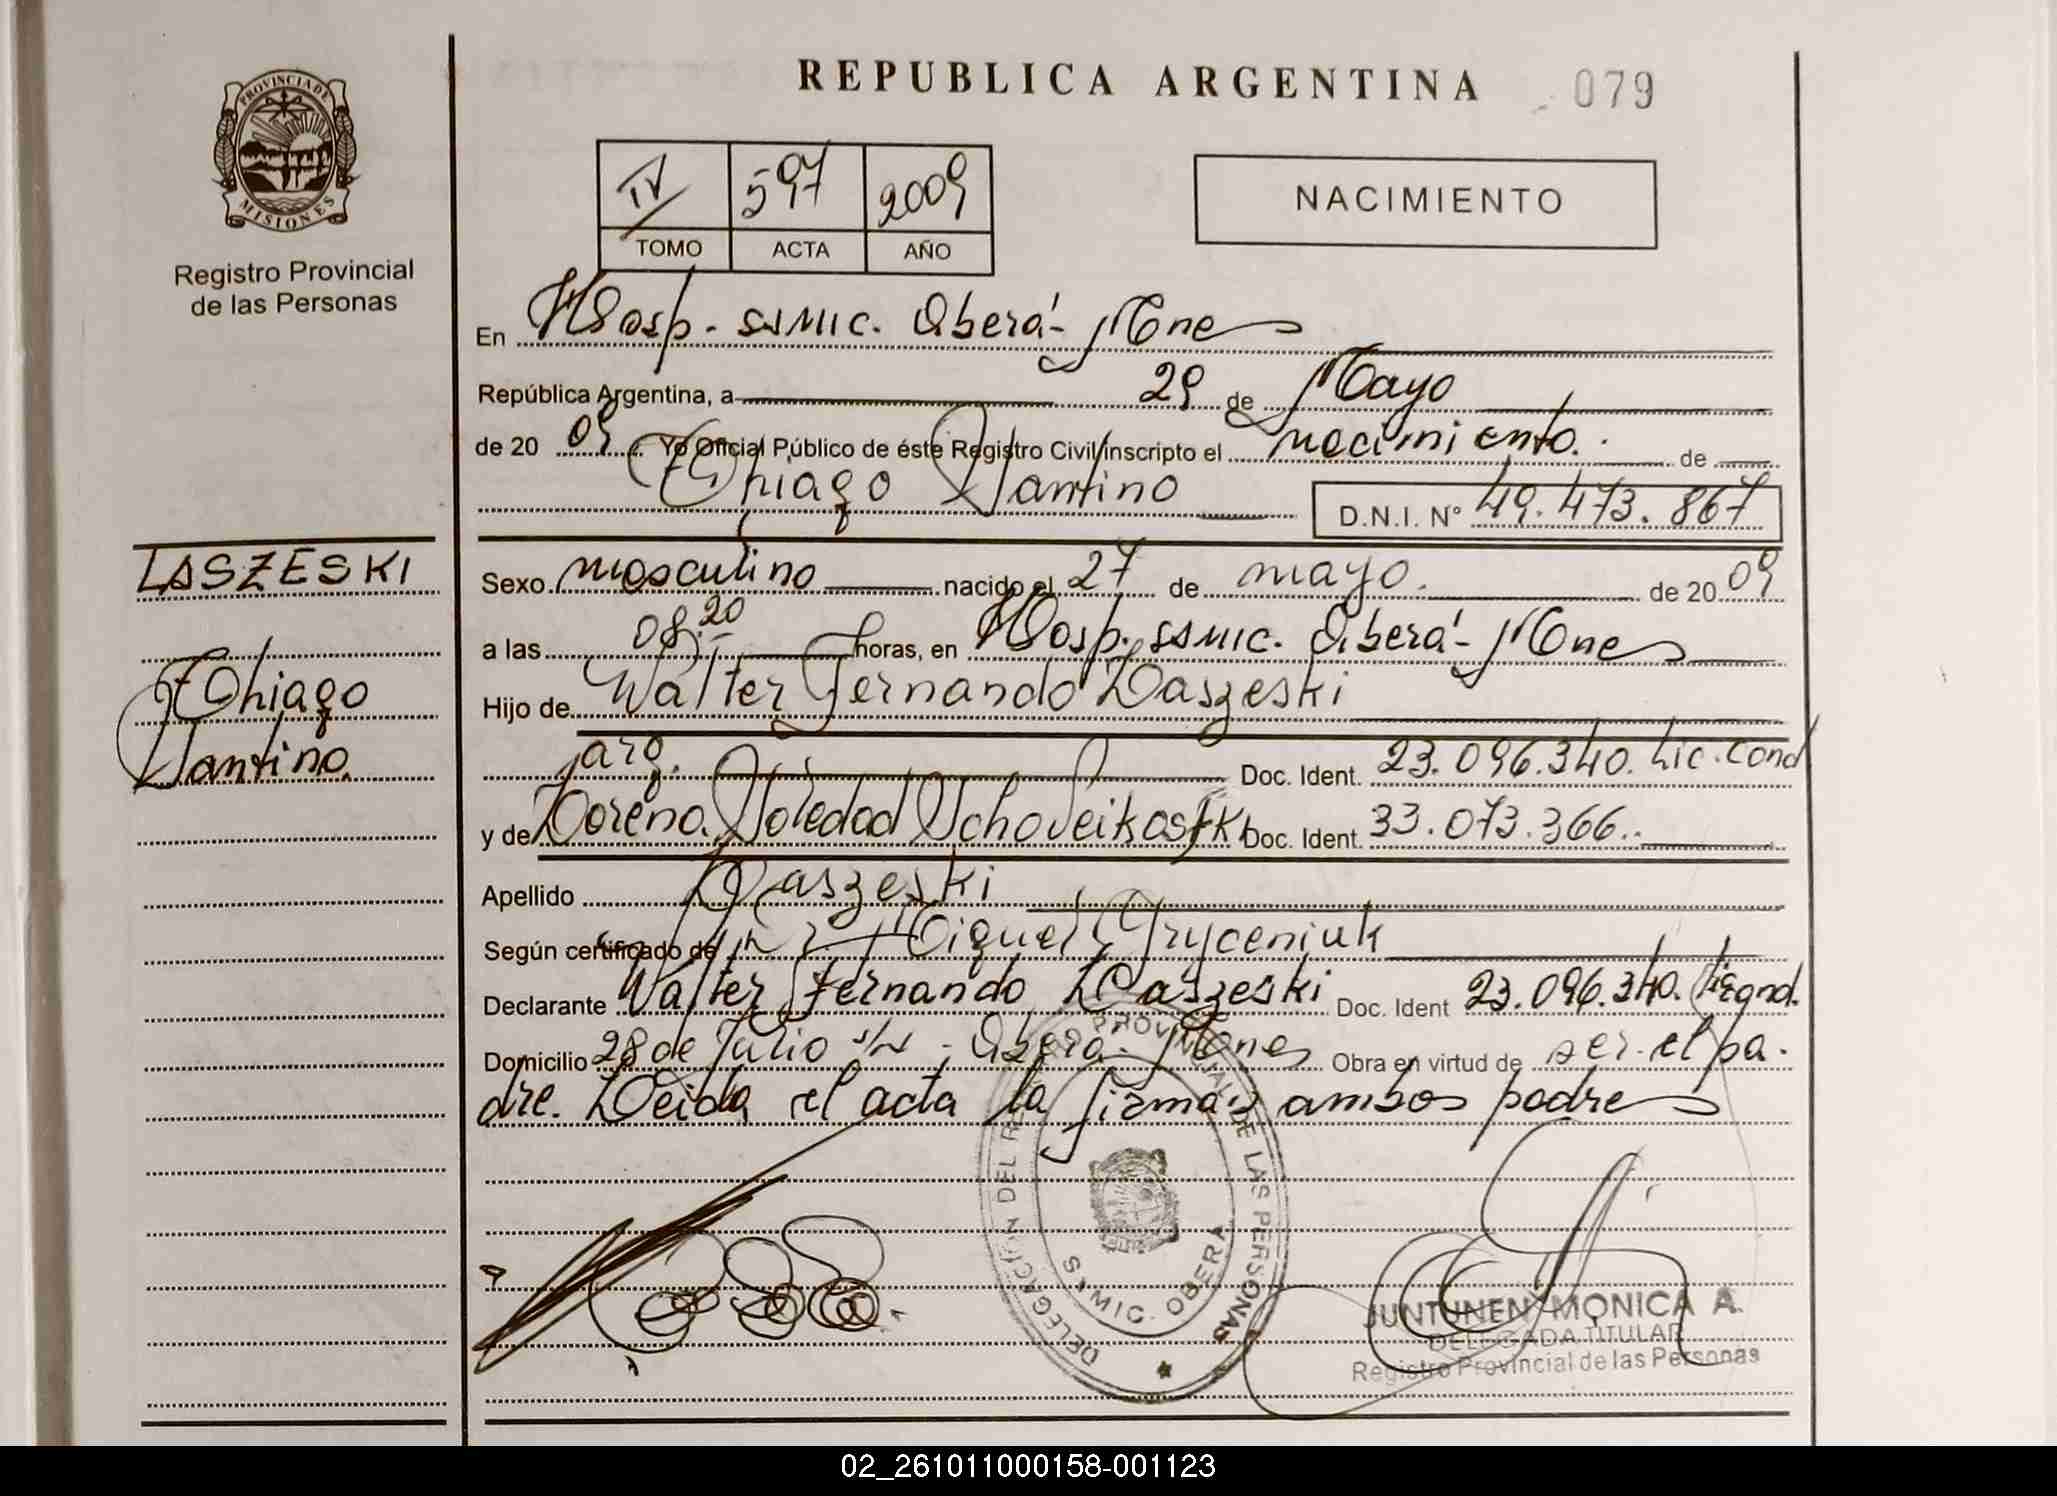 REPUBLICA ARGENTINA 079
PROVINCIA DE
MISIONES
Registro Provincial
de las Personas
IV 597 2009
TOMO ACTA AÑO
NACIMIENTO
En Hosp. SAMIC. Oberá - Mnes
República Argentina, a 29 de Mayo
de 20 09 Yo Oficial Público de éste Registro Civil inscripto el nacimiento. de
Thiago Santino D.N.I. N° 49.473.867
LASZESKI
Thiago
Santino.
Sexo masculino nacido el 27 de mayo. de 20 09
a las 08:20 horas, en Hosp. SAMIC. Oberá - Mnes
Hijo de Walter Fernando Laszeski
arg. Doc. Ident. 23.096.340. Lic. Cond
y de Lorena Soledad Doc. Ident. 33.073.366.
Apellido Laszeski
Según certificado de Dr. Miguel Hryceniuk
Declarante Walter Fernando Laszeski Doc. Ident 23.096.340.
Domicilio 28 de Julio s/n - Oberá. Mnes Obra en virtud de ser el pa-
dre. Leida el acta la firman ambos padres
DELEGACIÓN DEL REGISTRO PROVINCIAL DE LAS PERSONAS
SAMIC. OBERA
JUNTUNEN MONICA A.
DELEGADA TITULAR
Registro Provincial de las Personas
02_261011000158-001123